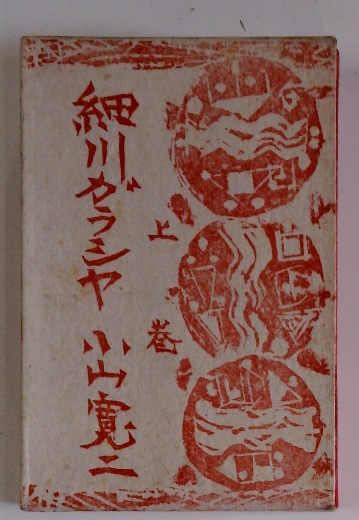 細川ガラシヤ 小山寛二
上巻